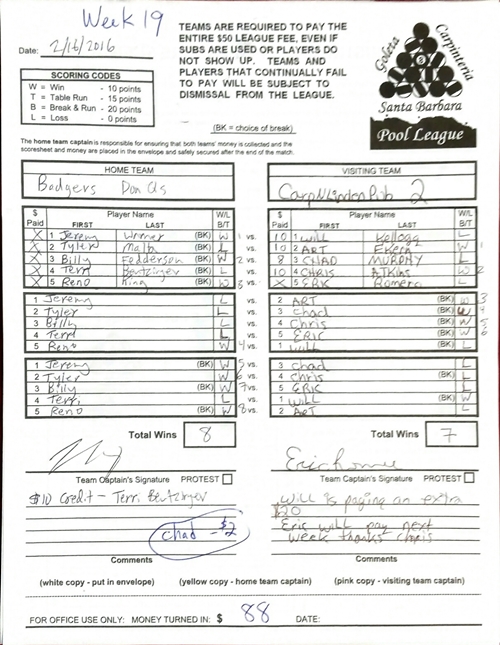 Week 19
Date: 2/16/2016
TEAMS ARE REQUIRED TO PAY THE
ENTIRE $50 LEAGUE FEE, EVEN IF
SUBS ARE USED OR PLAYERS DO
NOT SHOW UP. TEAMS AND
PLAYERS THAT CONTINUALLY FAIL
TO PAY WILL BE SUBJECT TO
DISMISSAL FROM THE LEAGUE.
Goleta Carpinteria
Santa Barbara
Pool League
SCORING CODES
W = Win - 10 points
T = Table Run - 15 points
B = Break & Run - 20 points
L = Loss - 0 points
(BK = choice of break)
The home team captain is responsible for ensuring that both teams' money is collected and the
scoresheet and money are placed in the envelope and safely secured after the end of the match.
HOME TEAM
Badgers Don Us
$ Paid Player Name FIRST LAST W/L B/T
X 1 Jeremy (BK) W 1 vs.
X 2 Tyler Malb (BK) L vs.
X 3 Billy Fedderson (BK) W 2 vs.
X 4 Terri Beutzinger (BK) L vs.
X 5 Reno King (BK) W 3 vs.
1 Jeremy L vs.
2 Tyler L vs.
3 Billy L vs.
4 Terri L vs.
5 Reno W 4 vs.
1 Jeremy (BK) W 5 vs.
2 Tyler W 6 vs.
3 Billy (BK) W 7 vs.
4 Terri L vs.
5 Reno (BK) W 8 vs.
Total Wins 8
Team Captain's Signature PROTEST
$10 Credit - Terri Beutzinger
chad - $2
VISITING TEAM
2
$ Paid Player Name FIRST LAST W/L B/T
10 1 Will Kellogg L
10 2 ART W 1
8 3 CHAD MURPHY L
10 4 CHRIS ATKINS W 2
X 5 ERIC Romero L
2 ART (BK) W 3
3 Chad (BK) W 4
4 Chris (BK) W 5
5 ERIC (BK) W 6
1 Will (BK) L
3 Chad L
4 Chris (BK) L
5 ERIC L
1 Will (BK) W
2 ART L
Total Wins 7
Team Captain's Signature PROTEST
Will is paying an extra
$20
Eric will pay next
week thanks chris
Comments
Comments
(white copy - put in envelope) (yellow copy - home team captain) (pink copy - visiting team captain)
FOR OFFICE USE ONLY: MONEY TURNED IN: $ 88 DATE: